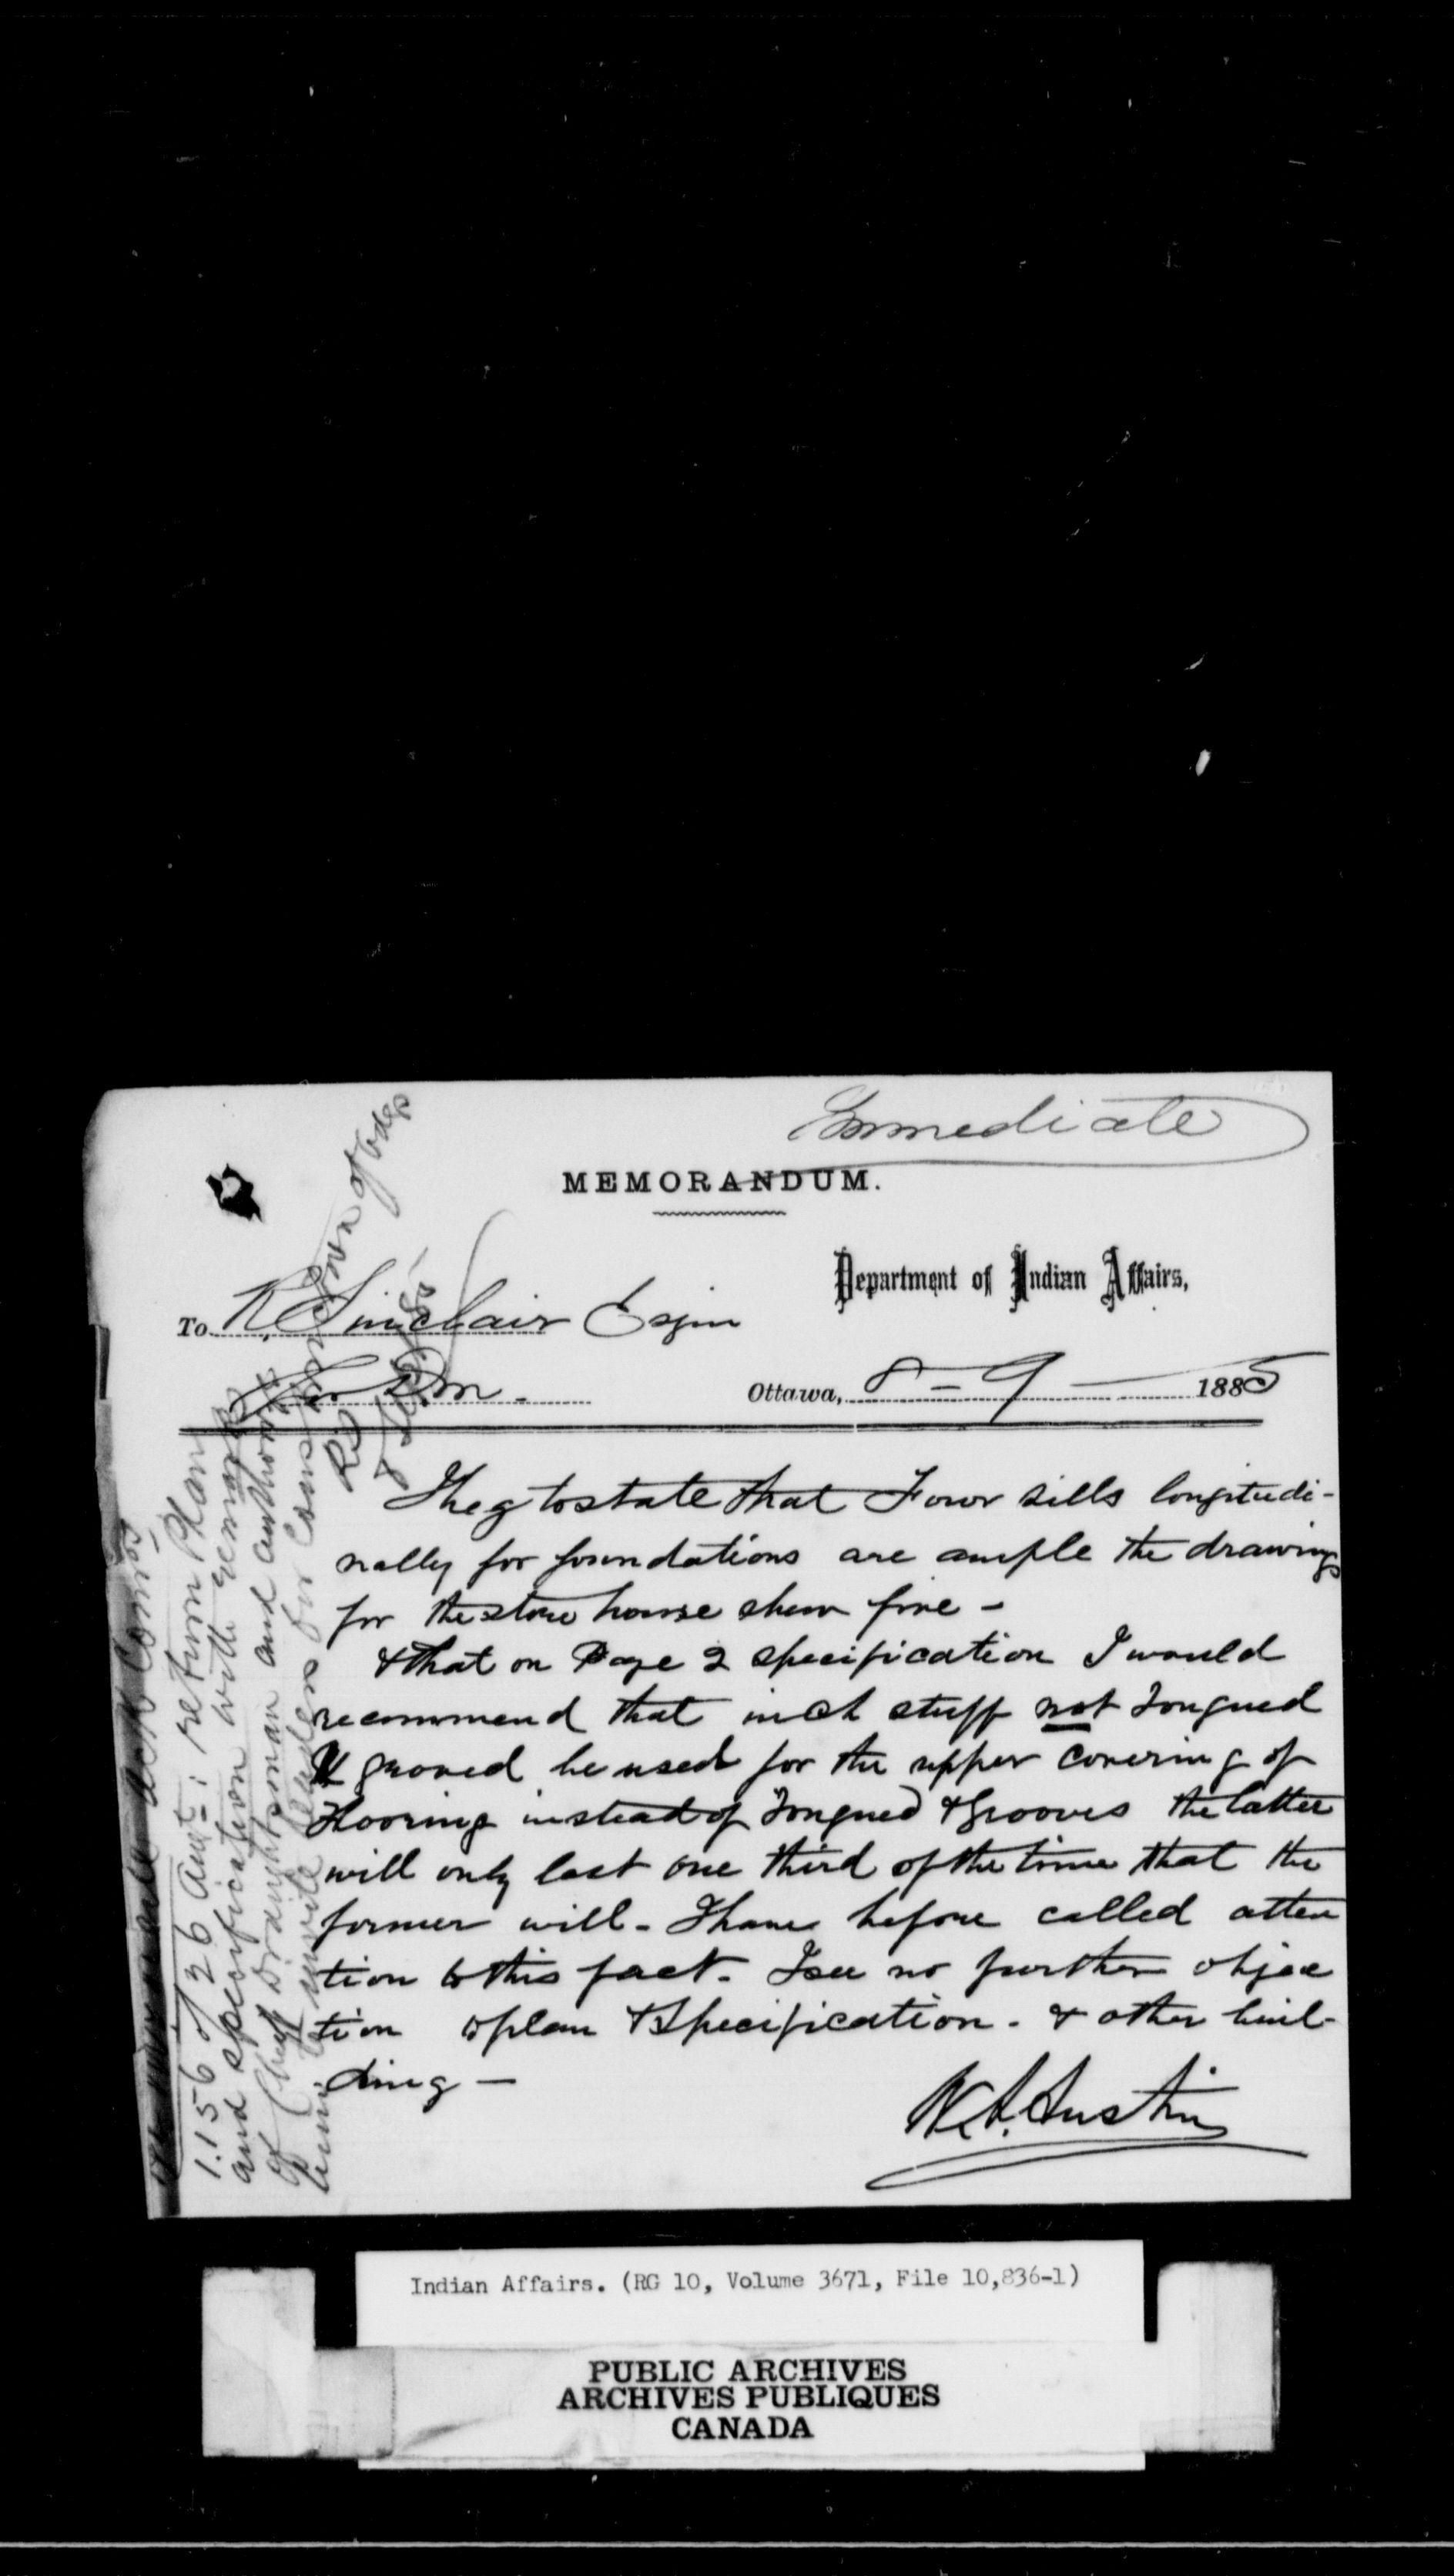 Immediate
MEMORANDUM.
Department of Indian Affairs,
To R. Sinclair Esqre
Ottawa, 8 - 9 - 1885
I beg to state that Four sills longitudi-
nally for foundations are ample the drawings
for the store house show five -
& that on Page 2 specification I would
recommend that inch stuff not Tongued
& grooved be used for the upper covering of
Flooring instead of Tongued & Grooves the latter
will only last one third of the time that the
former will - I have before called atten
tion to this fact. I see no further objec
tion to plan & Specification. & other buil-
ding -
W.A. Austin
1.156 of 26 Augt: return Plan
and specification with remarks
of Chief Draughtsman and authorize
him to invite tenders for Cons
Indian Affairs. (RG 10, Volume 3671, File 10,836-1)
PUBLIC ARCHIVES
ARCHIVES PUBLIQUES
CANADA